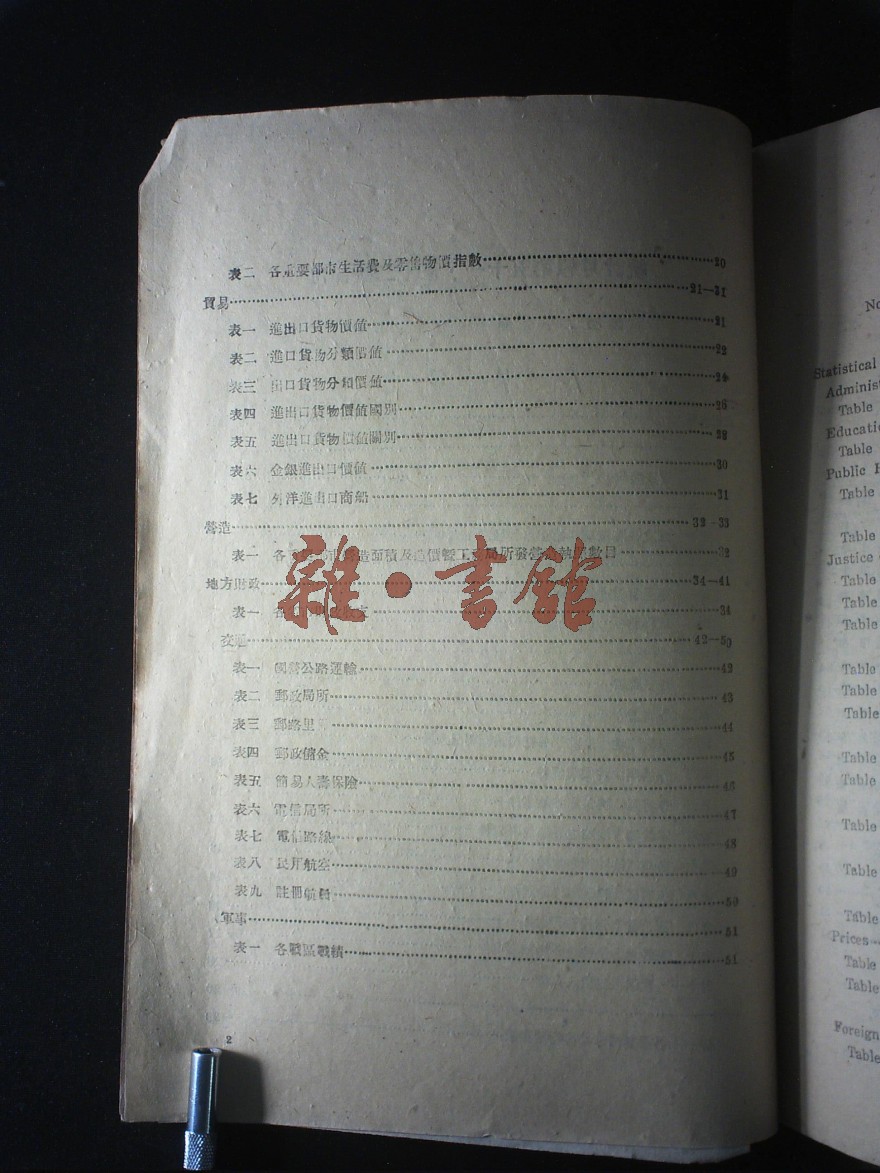 表二 各重要都市生活費及零售物價指數 20
貿易 21—31
表一 進出口貨物價値 21
表二 進口貨物分類價値 22
表三 出口貨物分類價値 24
表四 進出口貨物價値國別 26
表五 進出口貨物價値關別 28
表六 金銀進出口價値 30
表七 外洋進出口商船 31
營造 32-33
表一 各 造面積及造價暨工 局所發營造執照數目 32
地方財政 34—41
表一 34
交通 42—50
表一 國營公路運輸 42
表二 郵政局所 43
表三 郵路里 44
表四 郵政儲金 45
表五 簡易人壽保險 46
表六 電信局所 47
表七 電信路線 48
表八 民用航空 49
表九 註冊航 50
軍事 51
表一 各戰區戰績 51
2
雜·書館
No
Statistical
Administ
Table
Educatio
Table
Public
Table
Table
Justice
Table
Table
Table
Table
Table
Table
Table
Table
Table
Table
Table
Prices
Table
Table
Foreign
Table